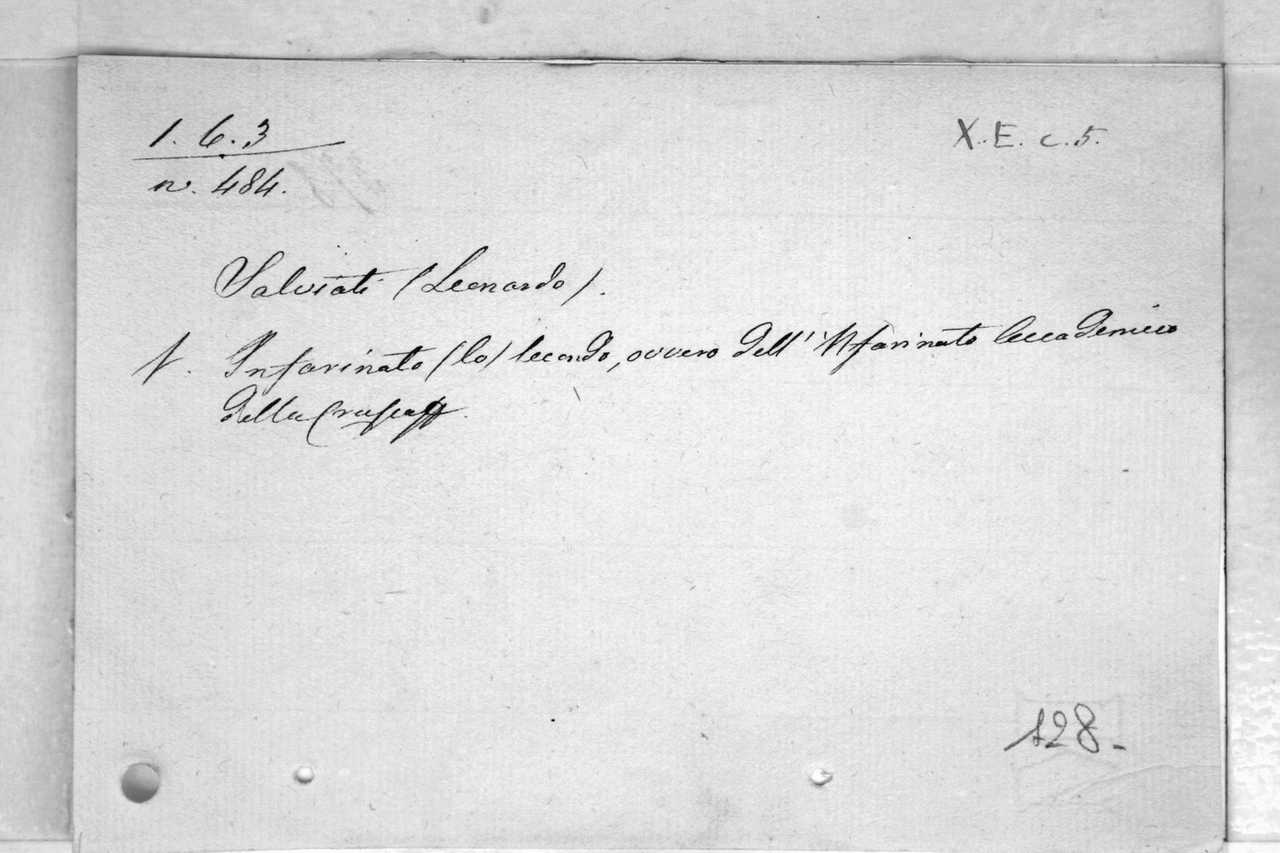 1. 6. 3
X. E. c. 5.
n. 484.
Salviati (Leonardo).
Infarinato (lo) secondo, ovvero dell' 'Nfarinato Accademico
della Crusca
128.